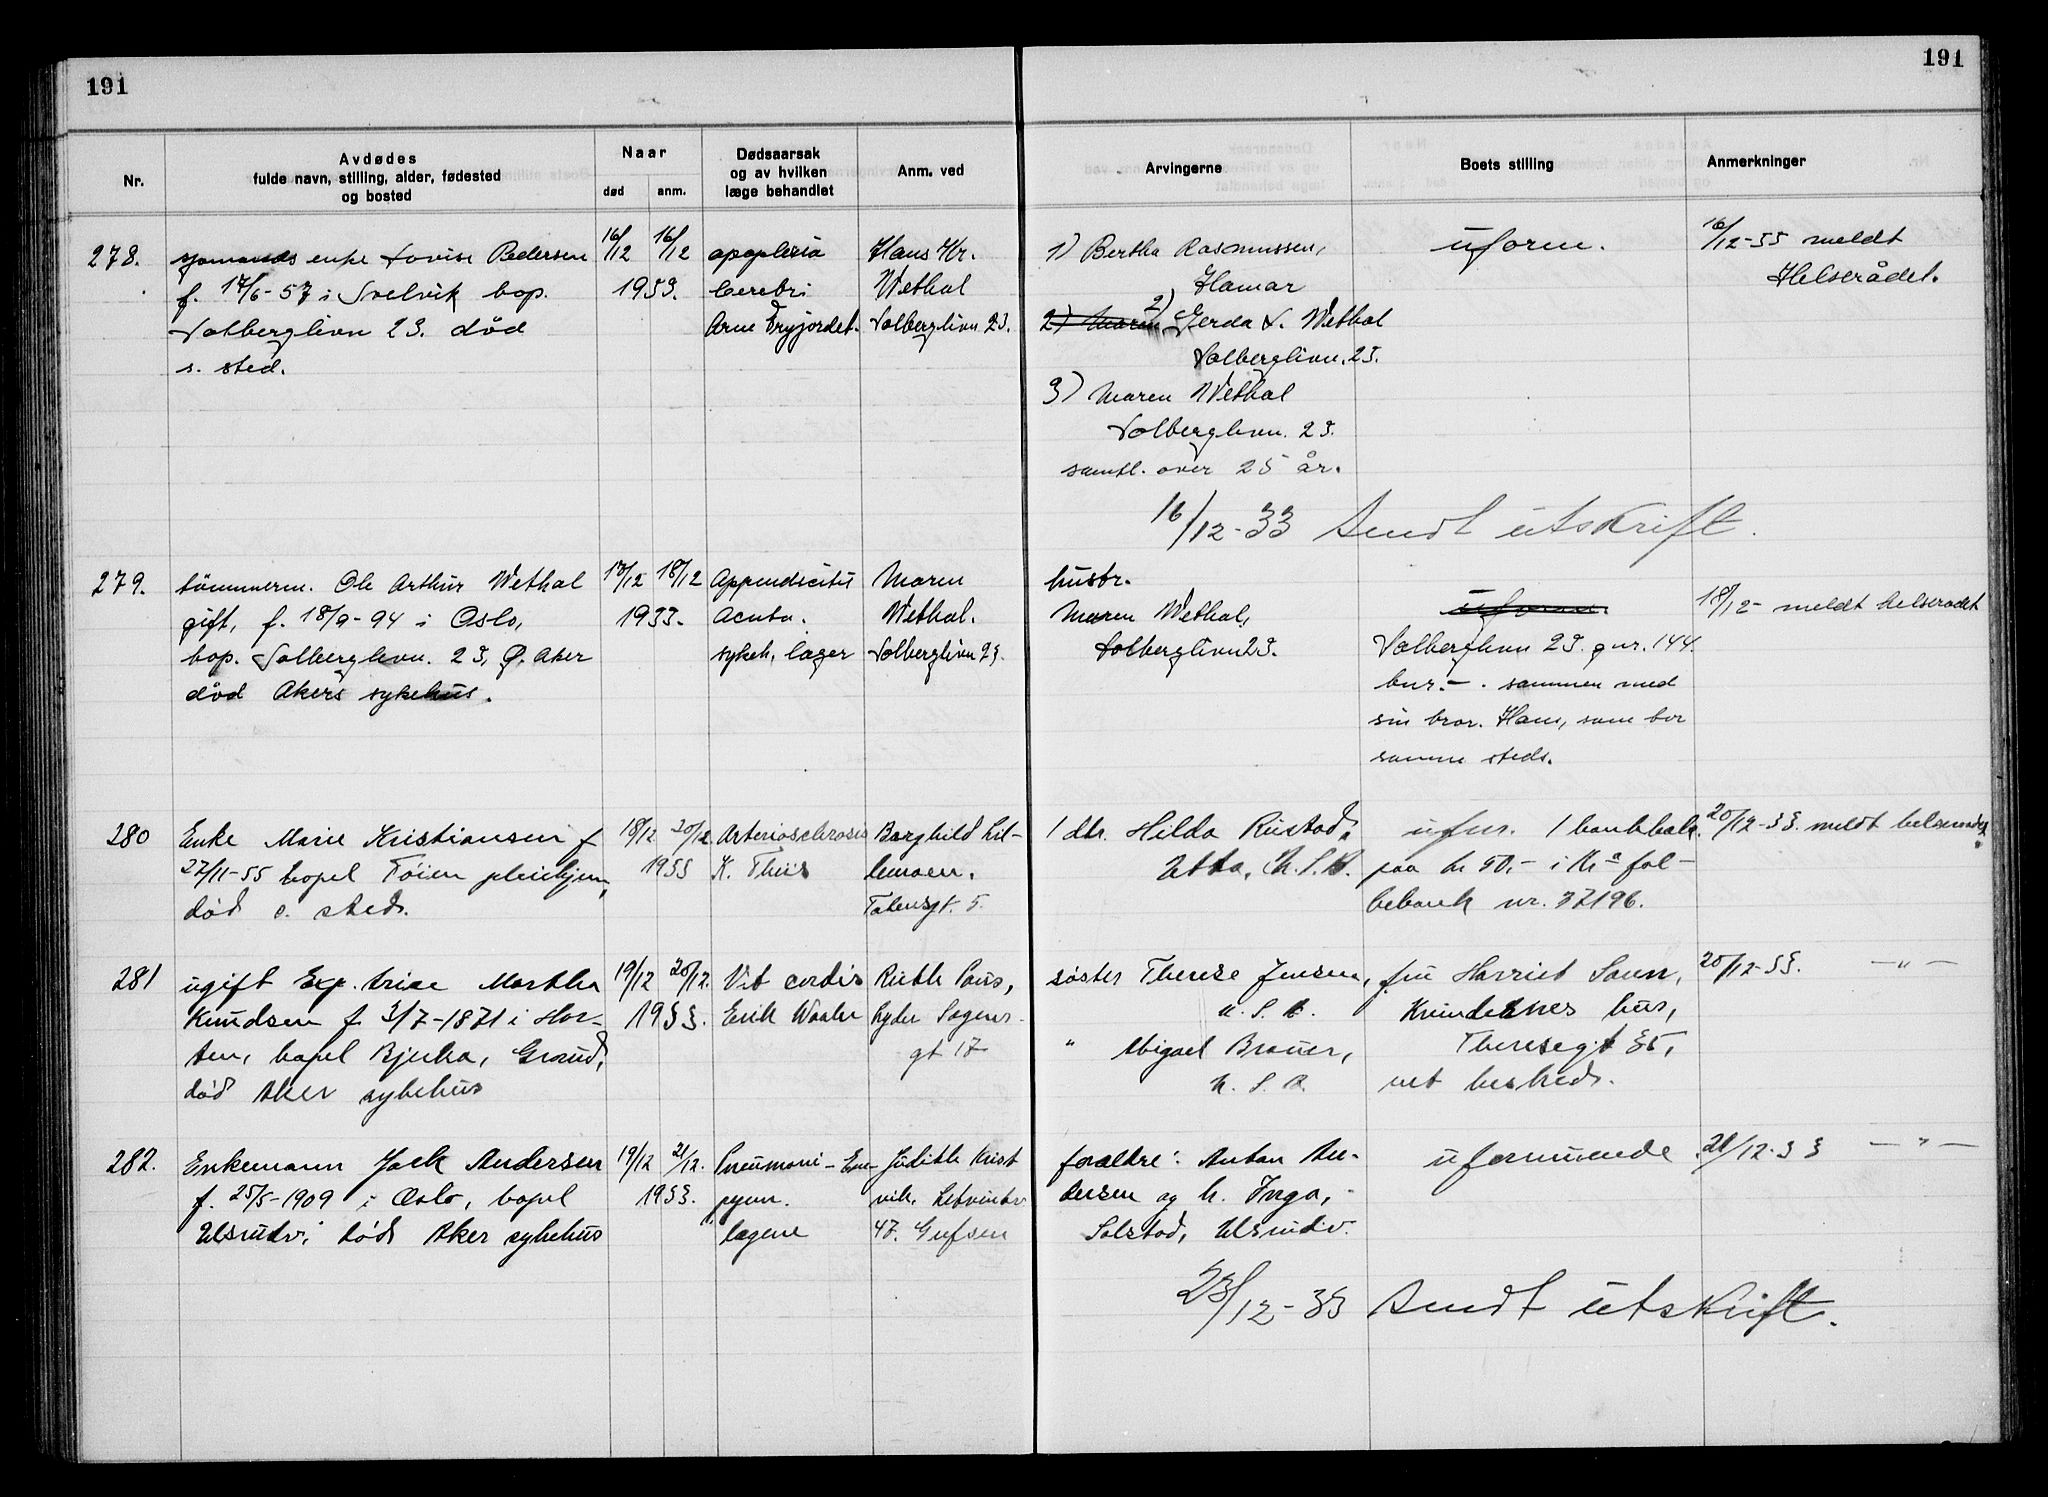 191
191
Nr.
Avdødes
fulde navn, stilling, alder, fødested
og bosted
Naar
død
anm.
Dødsaarsak
og av hvilken
læge behandlet
Anm. ved
Arvingerne
Boets stilling
Anmerkninger
278.
sjømands enke Lovise Pedersen
f. 17/6-57 i Svelvik bop.
Solberglivn 23. død
s. sted.
16/12 16/12
1933.
apoplexia
cerebri
Arne Fryjordet.
Hans Kr.
Wethal
Solberglivn. 23.
1) Bertha Rasmussen,
Hamar
2) Maren 2) Gerda L. Wethal
Solberglivn. 23.
3) Maren Wethal
Solberglivn. 23.
samtl. over 25 år.
uform.
16/12-33 meldt
Helserådet.
16/12-33 Sendt utskrift.
279.
tömmerm. Ole Arthur Wethal
gift, f. 18/9-94 i Oslo,
bop. Solberglivn. 23, Ø. Aker
død Akers sykehus.
17/12 18/12
1933.
Appendicitis
Acuta.
sykeh. læger
Maren
Wethal.
Solberglivn 23.
hustr.
Maren Wethal,
Solberglivn 23.
uform.
Solberglivn 23. gnr. 144
bnr. - . sammen med
sin bror. Hans, som bor
samme steds.
18/12- meldt helseradet
280
Enke Marie Kristiansen f
27/11-55 bopel Tøien pleiehjem,
død s. sted.
18/12 20/12
1933
Arteriosclerosis
K. Thiis
Borghild Lil-
lemoen.
Tøiensgt. 5.
1 dtr. Hilda Rustad,
U. S. A.
ufor. 1 bankbok
paa kr 50.- i Kr.a fol-
kebank nr. 37196.
20/12-33. meldt helseradet.
281
ugift Exp. trise Martha
Knudsen f. 3/7-1871 i Hor-
ten, bopel Bjerka, Grorud,
død Aker sykehus
19/12 20/12.
1933.
Vit. cordis
Erik Waaler
Ruth Paus,
Lyder Sagens
gt 17
søster Therese Jensen,
U. S. A.
" Abigael Brauer,
U. S. A.
fru Harriet Saun,
Kvindenes hus,
Theresegt 35,
vet besked.
20/12-33. —"—
282.
Enkemann Jack Andersen
f. 25/5-1909 i Oslo, bopel
Ulsrudv. død Aker sykehus
19/12 21/12.
1933.
Pneumoni - Em-
pyem.
lægene
Judith Krist
vik,
47. Grefsen
foreldre: Anton An-
dersen og h. Inga,
Solstad, Ulsrudv.
uformuende
21/12-33 —"—
23/12-33 Sendt utskrift.